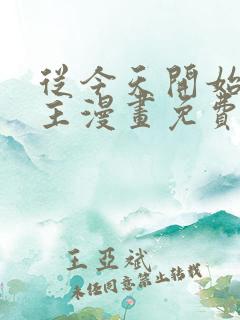 從今天開始
王漫畫免費
王亞斌
未经同意禁止转载